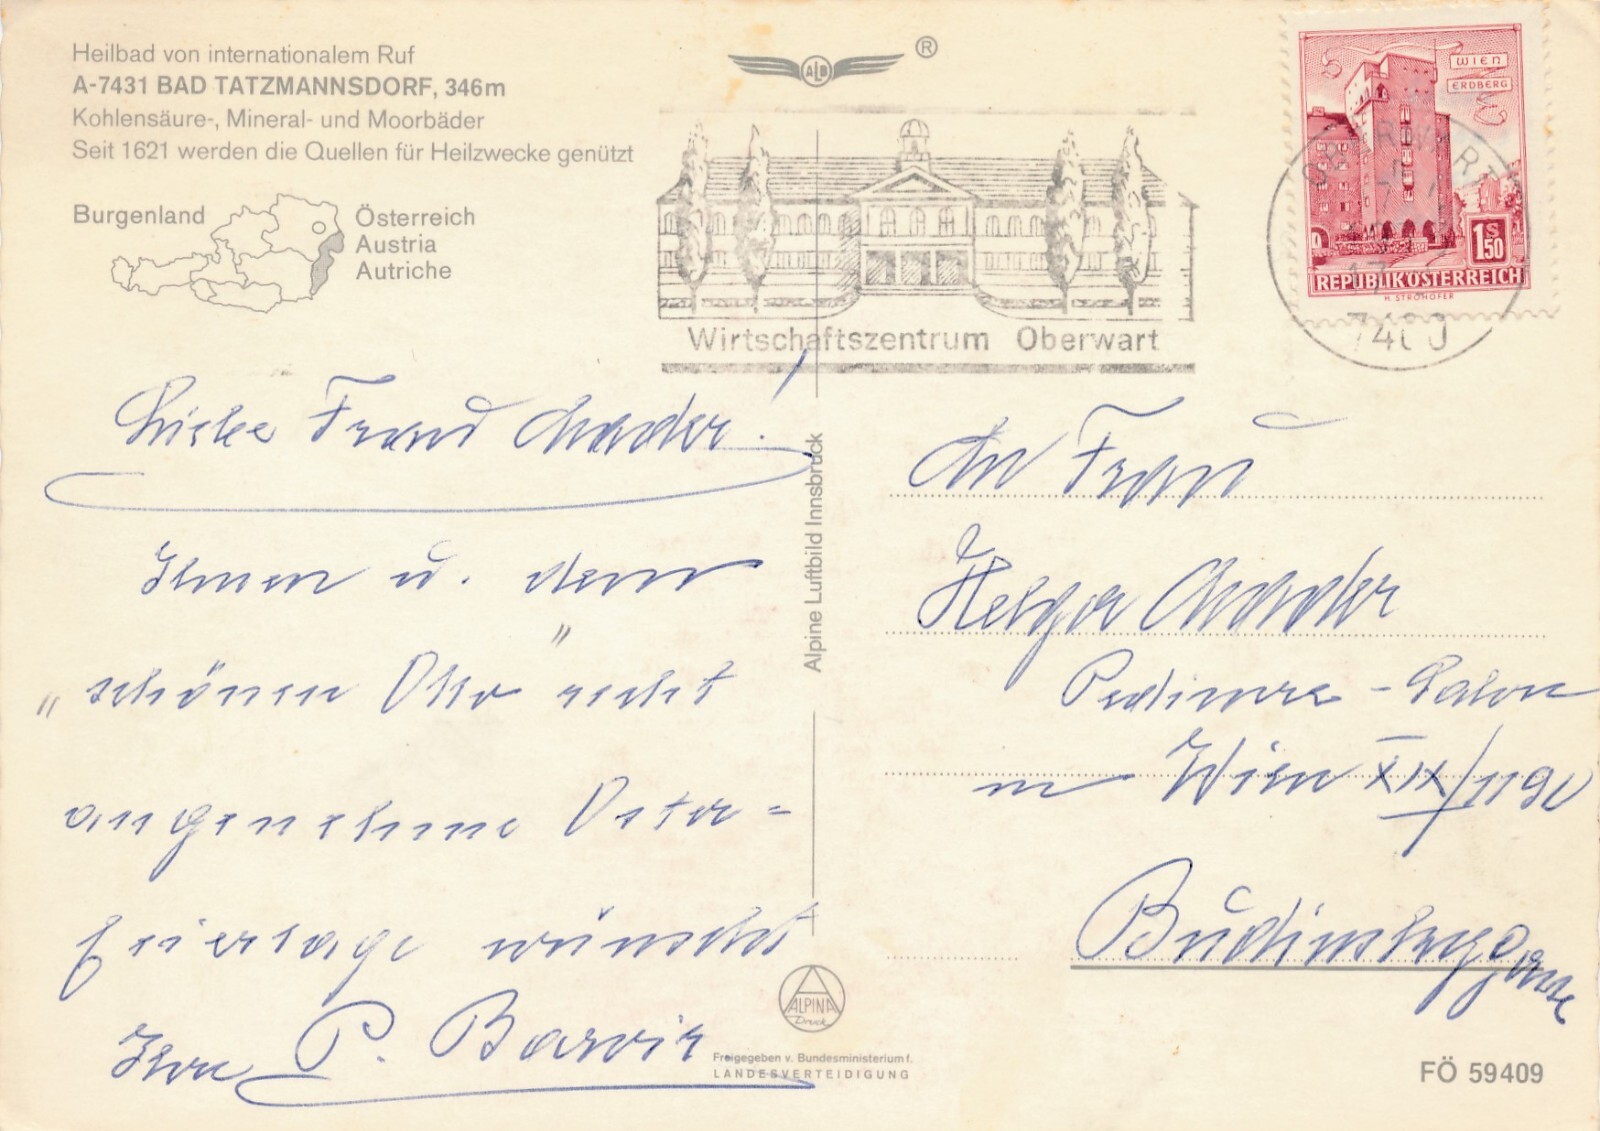 Heilbad von internationalem Ruf
A-7431 BAD TATZMANNSDORF, 346m
Kohlensäure-, Mineral- und Moorbäder
Seit 1621 werden die Quellen für Heilzwecke genützt
Burgenland
Österreich
Austria
Autriche
ALB
®
Wirtschaftszentrum Oberwart
WIEN
ERDBERG
S
1 50
REPUBLIK ÖSTERREICH
H. STROHOFER
OBERWART
Liebe Frau
Ihnen u. dem
„schönen Otto" recht
angenehme Oster=
feiertage wünscht
Ihre P.
Alpine Luftbild Innsbruck
An Frau
Helga
Pediküre-Salon
in Wien XIX/1190
ALPINA
Druck
Freigegeben v. Bundesministerium f.
LANDESVERTEIDIGUNG
FÖ 59409